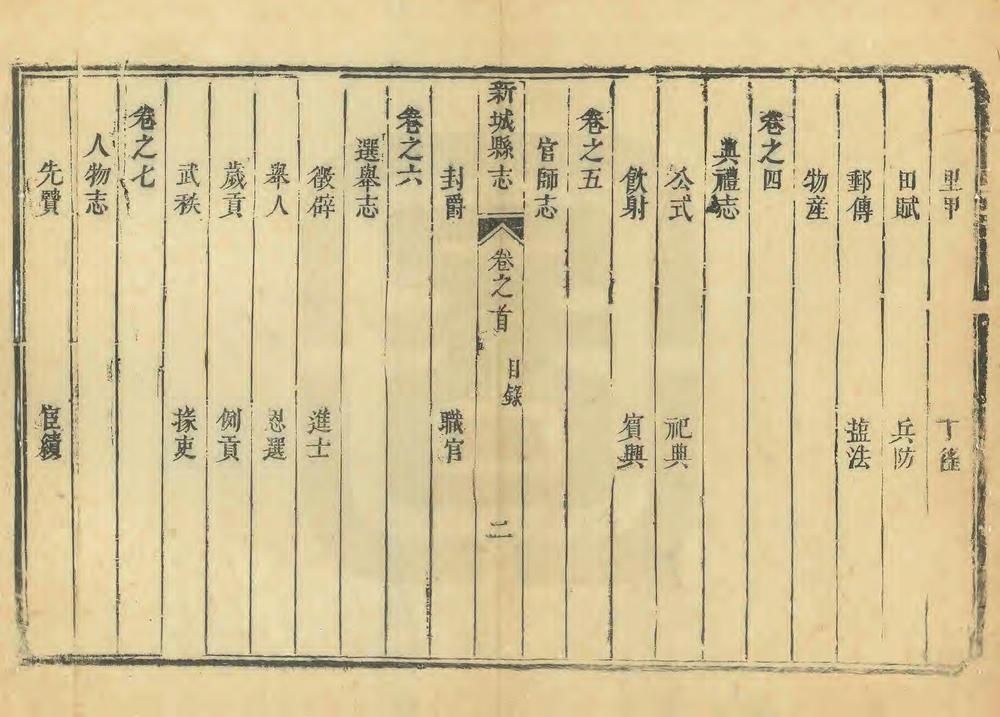 里甲 丁徭
田賦 兵防
郵傳 鹽法
物産
卷之四
典禮志
公式 祀典
飲射 賓興
卷之五
官師志
新城縣志 卷之首 目錄 二
封爵 職官
卷之六
選舉志
徵辟 進士
舉人 恩選
歲貢 例貢
武秩 掾吏
卷之七
人物志
先賢 宦績